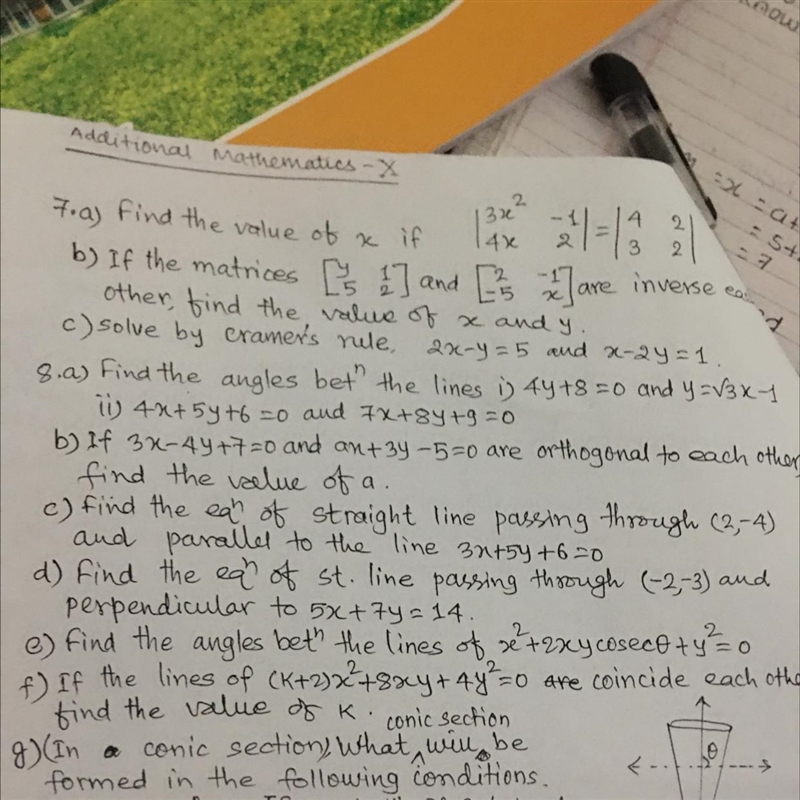 KNOW
Additional Mathematics - X
= x = a+
= 5+
= 7
7. a) Find the value of x if |3x² -1| = |4 2|
|4x 2| |3 2|
b) If the matrices [y 1] and [2 -1] are inverse
[5 2] [-5 x]
other, find the value of x and y.
c) solve by cramer's rule, 2x-y=5 and x-2y=1.
8. a) Find the angles betⁿ the lines i) 4y+8=0 and y=√3x-1
ii) 4x+5y+6=0 and 7x+8y+9=0
b) If 3x-4y+7=0 and ax+3y-5=0 are orthogonal to each other,
find the value of a.
c) Find the eqⁿ of straight line passing through (2,-4)
and parallel to the line 3x+5y+6=0
d) Find the eqⁿ of st. line passing through (-2,-3) and
perpendicular to 5x+7y=14.
e) Find the angles betⁿ the lines of x²+2xycosecθ+y²=0
f) If the lines of (K+2)x²+8xy+4y²=0 are coincide each othe
find the value of K.
conic section
g) (In a conic section), What ^ will be
formed in the following conditions.
θ